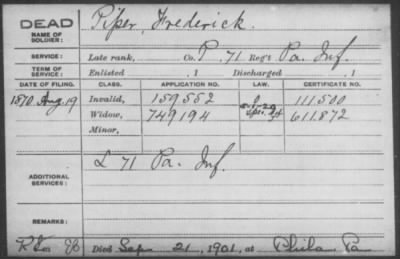 DEAD
NAME OF SOLDIER:
Piper, Frederick.
SERVICE: Late rank, Co. P, 71 Reg't Pa. Inf.
TERM OF SERVICE: Enlisted , 1 Discharged , 1
DATE OF FILING. CLASS. APPLICATION NO. LAW. CERTIFICATE NO.
1870 Aug. 19 Invalid, 159552 111.500
Widow, 749194 611.872
Minor,
ADDITIONAL SERVICES:
L 71 Pa. Inf.
REMARKS:
Died Sep 21, 1901, at Phila Pa